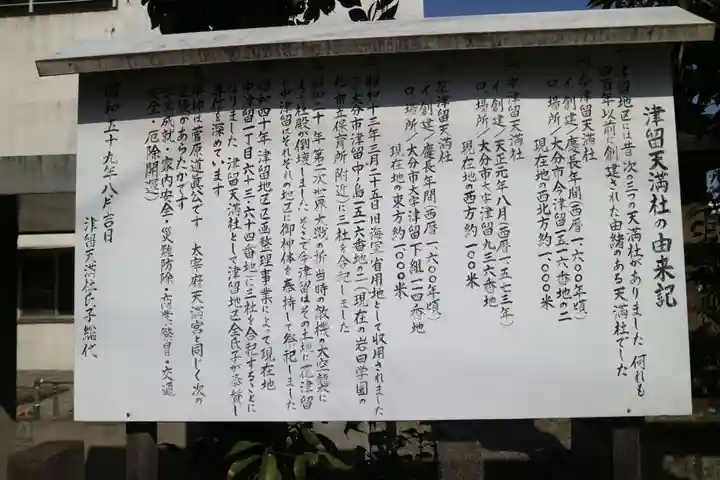 津留天満社の由来記
津留地区には昔次の三つの天満社がありました 何れも
四百年以前に創建された由緒のある天満社でした
今津留天満社
イ 創建/慶長年間(西暦一六〇〇年頃)
ロ 場所/大分市今津留一五一六番地の二
現在地の西北方約一〇〇〇米
中津留天満社
イ 創建/天正元年八月(西暦一五七三年)
ロ 場所/大分市大字津留九三六番地
現在地の西方約一〇〇米
津留天満社
イ 創建/慶長年間(西暦一六〇〇年頃)
ロ 場所/大分市大字津留下組一二四番地
現在地の東方約一〇〇〇米
昭和十三年三月二十五日旧海軍省用地として収用されました
で大分市津留中ノ島一五一六番地の二(現在の岩田学園の
北 市立保育所附近)に三社を合祀しました
昭和二十年第二次世界大戦の折当時の敵機の大空襲に
より社殿が倒壊しました そこで今津留はその土地に 花津留
と中津留はそれぞれの地区に御神体を奉持して祭祀しました
昭和四十年津留地区区画整理事業によって現在地
中津留一丁目六十三・六十四番地に三社を合祀することに
なりました 津留天満社として津留地区全氏子が奉持し
尊信を深めています
祭神は菅原道真公です 太宰府天満宮と同じく次の
霊験があらたかです
学業成就・家内安全・災難防除・商売繁昌・交通
安全・厄除開運
昭和五十九年八月 吉日
津留天満社氏子総代